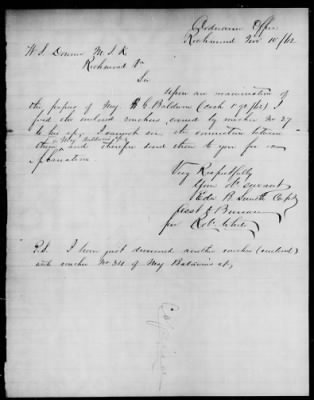 Ordnance Office
Richmond Nov 10/62
W. S. Downer M. S. K
Richmond Va
Sir
Upon an examination of
the papers of Maj B G Baldwin
find the enclosed vouchers, covered by voucher No 27
to his a/c, I cannot see the connection between
them, and therefore send them to you for an
explanation
Very Respectfully
Your Ob servant
Edw B Smith Capt
Bureau
for
P.S. I have just discovered another voucher (enclosed)
with voucher No. 34 of Maj Baldwin's a/c,